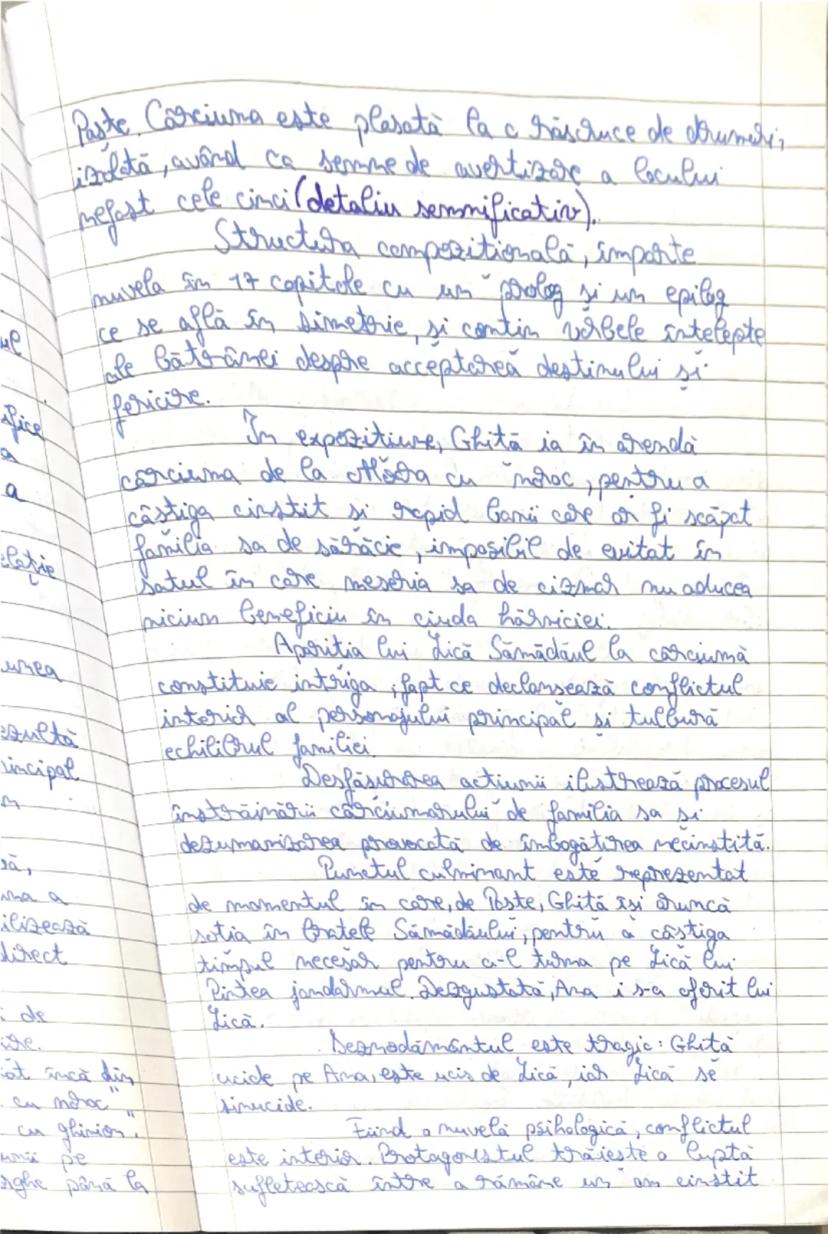 Paște. Cârciuma este plasată la o răscruce de drumuri,
izolată, având ca semne de avertizare a locului
nefast cele cinci (detaliu semnificativ).
Structura compozițională, împarte
nuvela în 17 capitole cu un prolog și un epilog
ce se află în simetrie, și conțin vorbele înțelepte
ale bătrânei despre acceptarea destinului și
fericire.
În expozițiune, Ghiță ia în arendă
cârciuma de la Moara cu noroc, pentru a
câștiga cinstit și rapid banii care ar fi scăpat
familia sa de sărăcie, imposibil de evitat în
satul în care meseria sa de cizmar nu aducea
niciun beneficiu în ciuda hărniciei.
Apariția lui Lică Sămădăul la cârciumă
constituie intriga, fapt ce declanșează conflictul
interior al personajului principal și tulbură
echilibrul familiei.
Desfășurarea acțiunii ilustrează procesul
înstrăinării cârciumarului de familia sa și
dezumanizarea provocată de îmbogățirea necinstită.
Punctul culminant este reprezentat
de momentul în care, de Paște, Ghiță își aruncă
soția în brațele Sămădăului, pentru a câștiga
timpul necesar pentru a-l turna pe Lică lui
Pintea jandarmul. Dezgustată, Ana i s-a oferit lui
Lică.
Deznodământul este tragic: Ghiță
ucide pe Ana, este ucis de Lică, iar Lică se
sinucide.
Fiind o nuvelă psihologică, conflictul
este interior. Protagonistul trăiește o luptă
sufletească între a rămâne un om cinstit